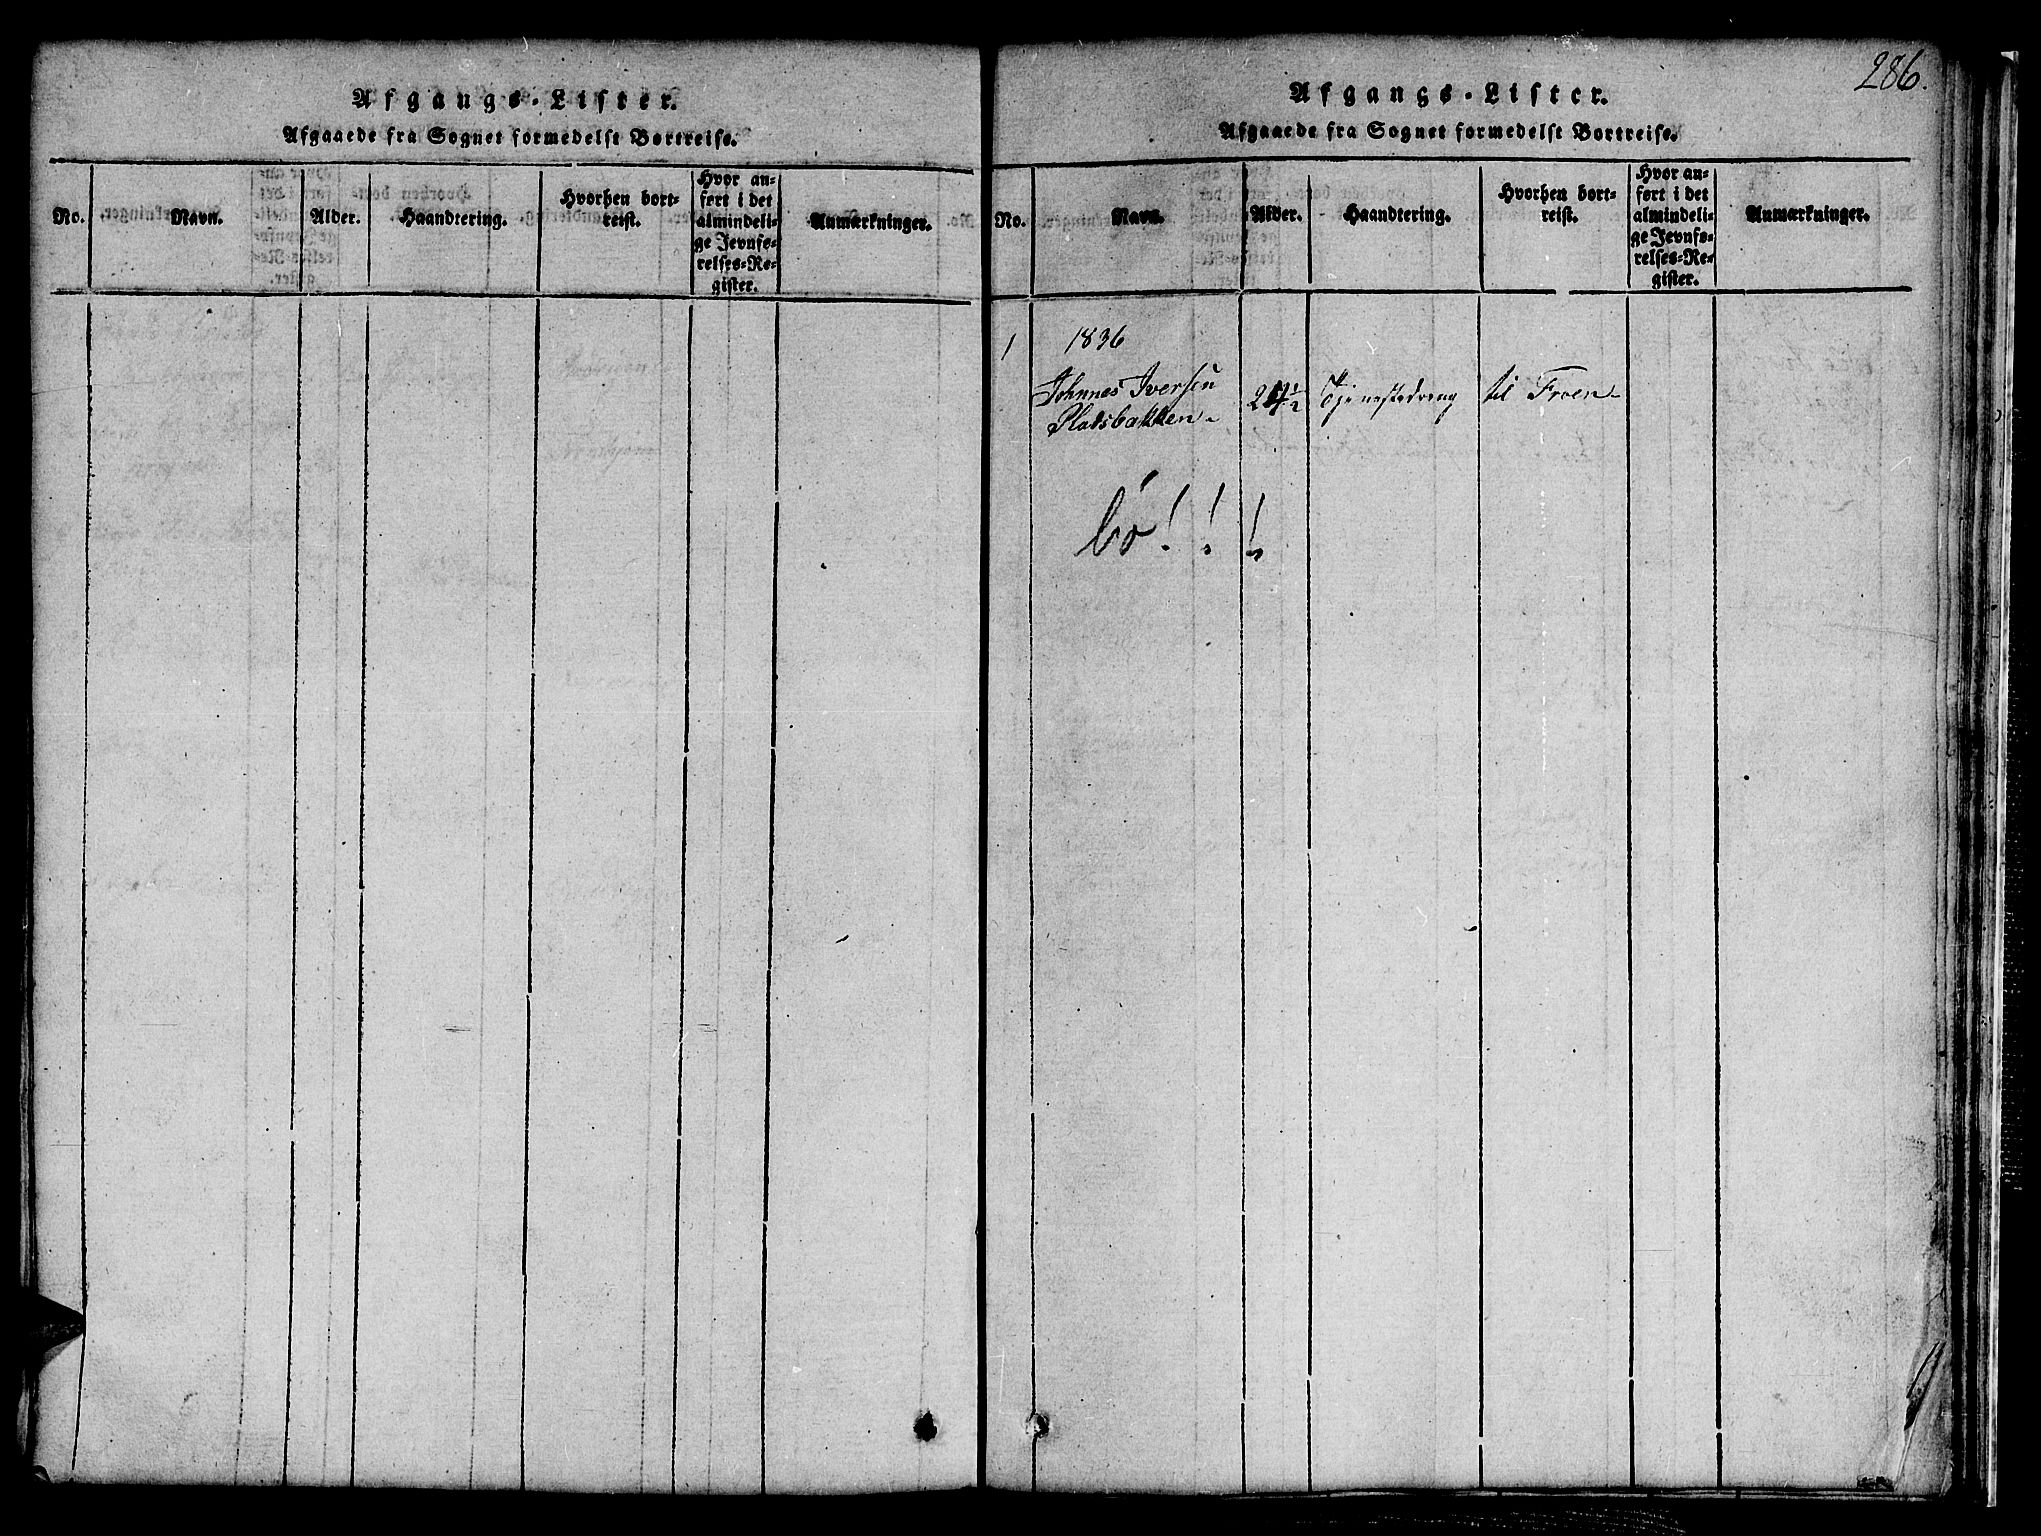 Afgangs-Lister.
Afgaaede fra Sognet formedelst Bortreise.
No.
Navn.
Alder.
Haandtering.
Hvorhen bort-
reist.
Hvor an-
ført i det
almindeli-
ge Jevnfø-
relses-Re-
gister.
Anmærkninger.
286.
Afgangs-Lister.
Afgaaede fra Sognet formedelst Bortreise.
No.
Navn.
Alder.
Haandtering.
Hvorhen bort-
reist.
Hvor an-
ført i det
almindeli-
ge Jevnfø-
relses-Re-
gister.
Anmærkninger.
1 1836
Johnnes Iversen
Pladsbakken 24½ Tjenestedreng til Froen
bø!!!